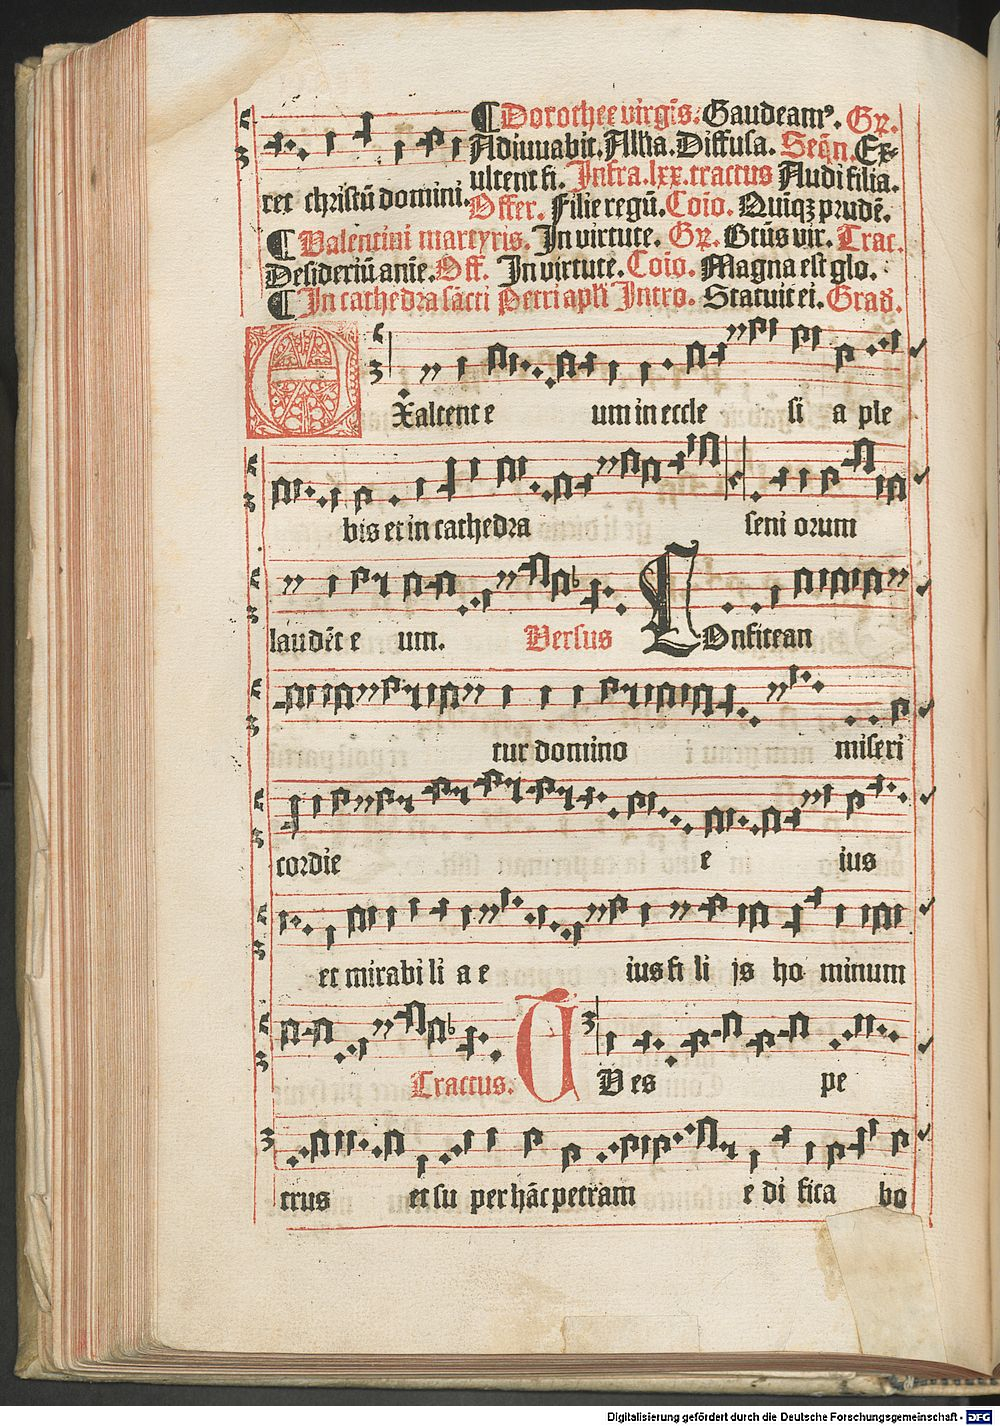 ¶ Dorothee virgīs. Gaudeamꝰ. Gꝛ.
Adiuuabit. Alľa. Diffusa. Seqn̄. Ex-
ultent fi. Infra .lxx. tractus Audi filia.
ret christū domini. Offer. Filie regū. Coīo. Quīqꝫ prudē.
¶ Valentini martyris. In virtute. Gꝛ. Btūs vir. Trac.
Desideriū anīe. Off. In virtute. Coīo. Magna est glo.
¶ In cathedra sācti Petri apľi Intro. Statuit ei. Grad.
EXaltent e um in eccle si a ple
bis et in cathedra seni orum
laudēt e um. Versus COnfitean
tur domino miseri
cordie e ius
et mirabi li a e ius fi li js ho minum
Tractus. TV es pe
trus et su per hāc petram e di fica bo
Digitalisierung gefördert durch die Deutsche Forschungsgemeinschaft - DFG